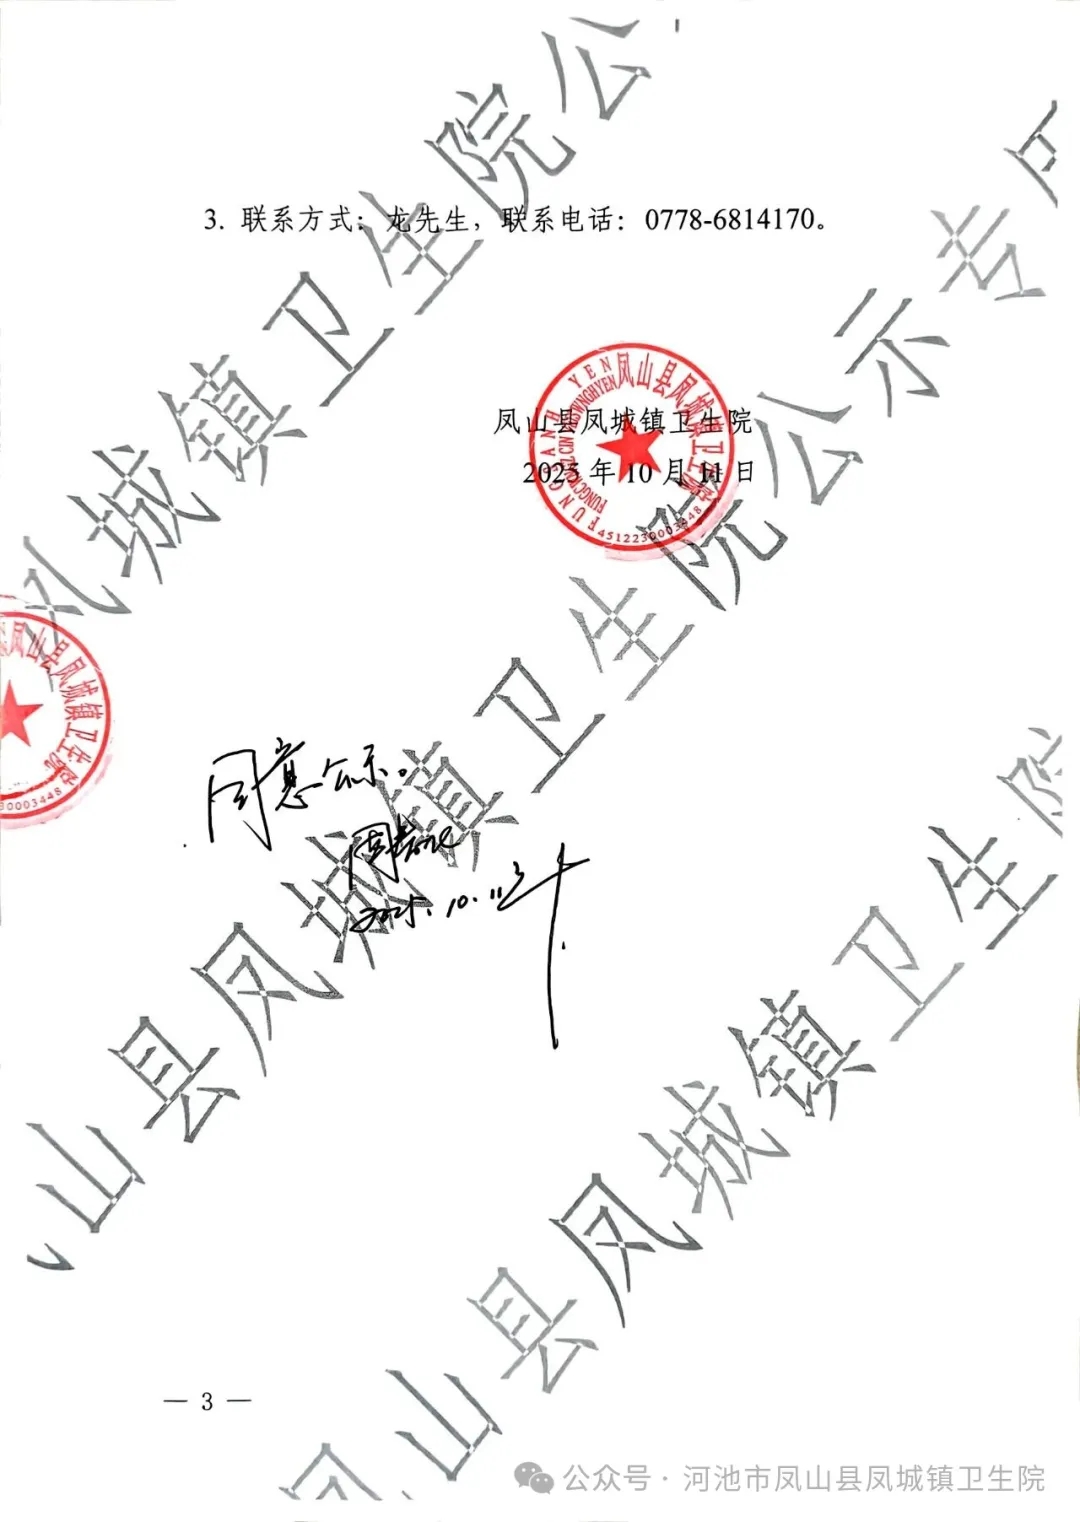 3. 联系方式：龙先生，联系电话：0778-6814170。
凤山县凤城镇卫生院
2025年10月11日
FUNGSANH YEN
FUNGCWNGZ CIN VEISWNGHYEN
凤山县凤城镇卫生院
4512230003448
凤山县凤城镇卫生院
30003448
同意公示。
2025.10.11
凤城镇卫生院公
山县凤城镇卫生院公示专用
凤山县凤城镇卫生院
— 3 —
公众号 · 河池市凤山县凤城镇卫生院